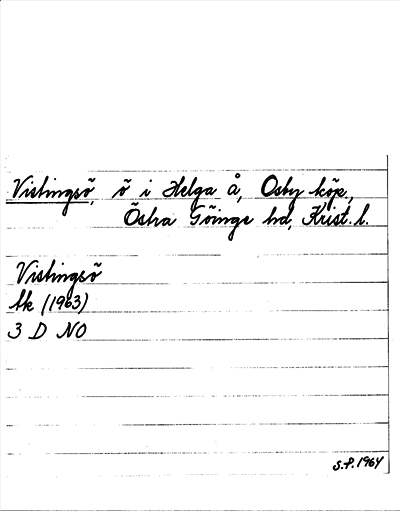 Vistingsö, ö i Helga å, Osby köp.,
Östra Göinge hd, Krist. l.
Vistingsö
Ek (1963)
3 D NO
S.P. 1964